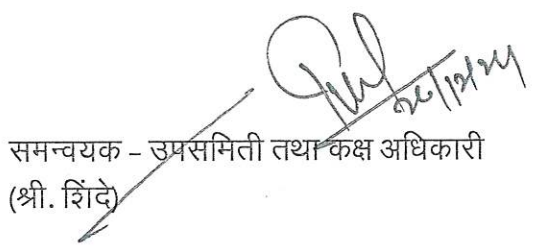 समन्वयक – उपसमिती तथा कक्ष अधिकारी
(श्री. शिंदे)